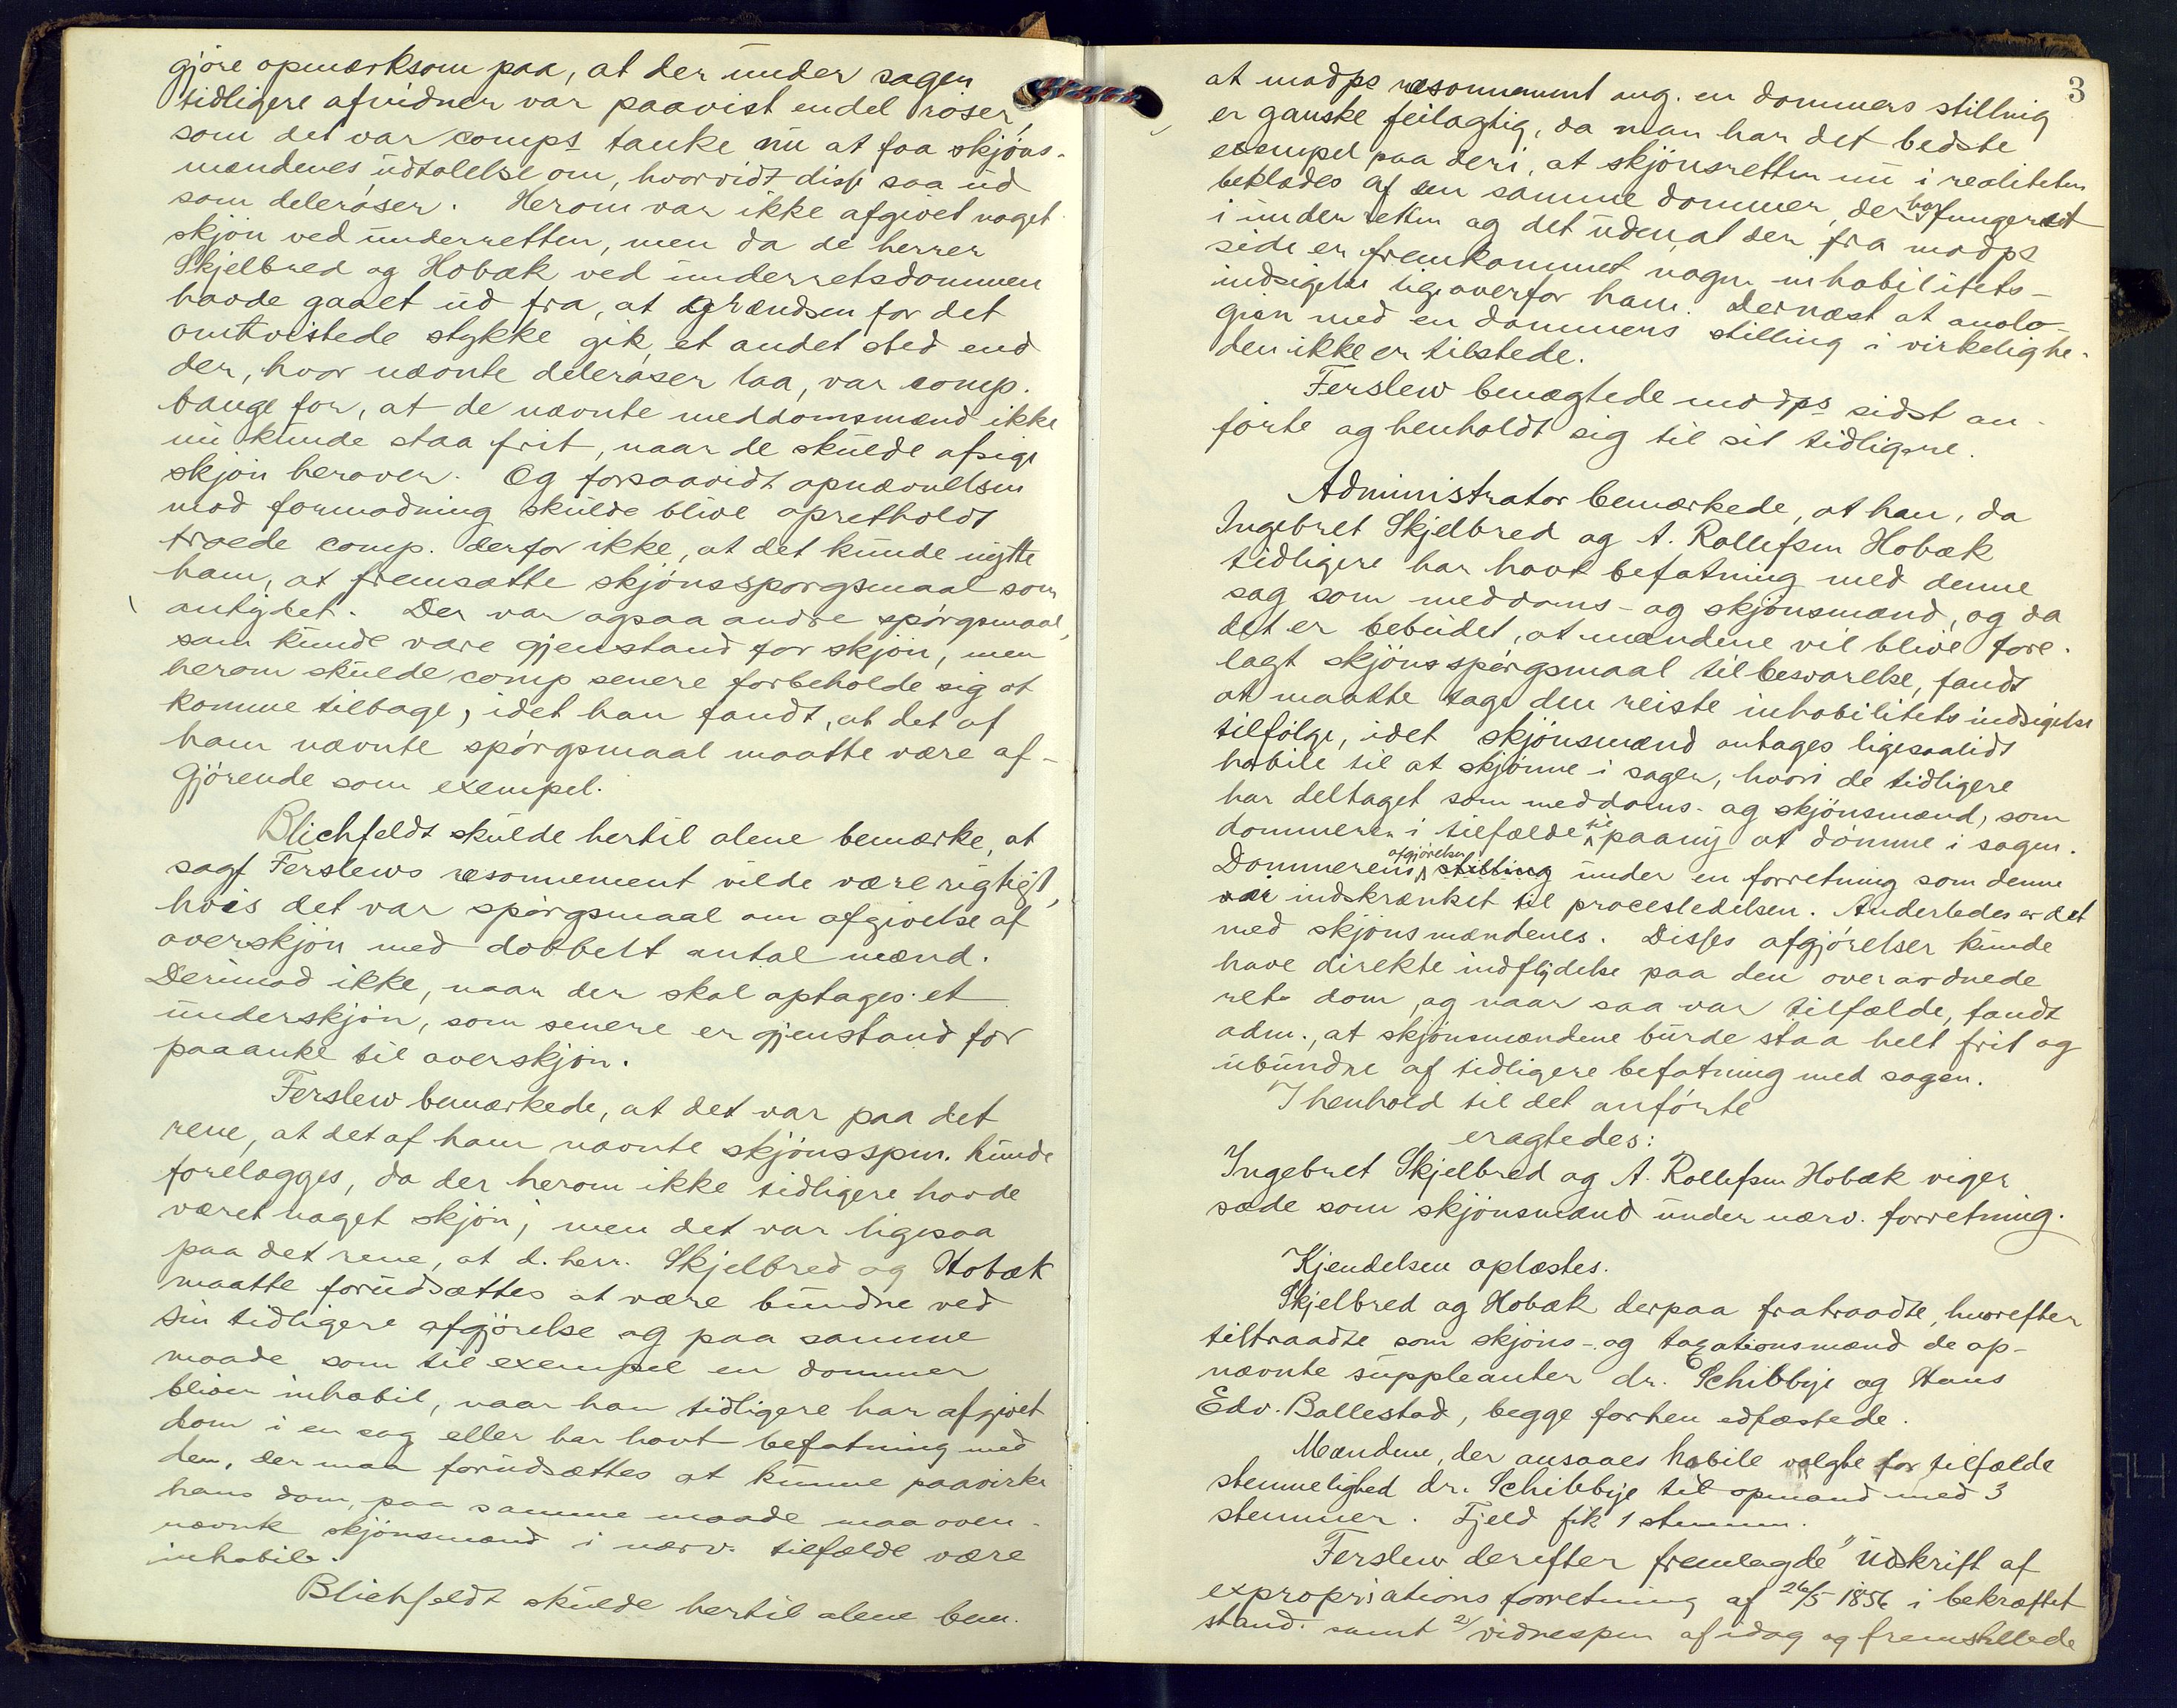 gjøre opmærksom paa, at der under sagen
tidligere afvidner var paavist endel røser,
som det var comps tanke nu at faa skjøns-
mændenes udtalelse om, hvorvidt disse saa ud
som delerøser. Herom var ikke afgivet noget
skjøn ved underretten, men da de herrer
Skjelbred og Hobæk ved underretsdommen
havde gaaet ud fra, at grændsen for det
omtvistede stykke gik et andet sted end
der, hvor nævnte delerøser laa, var comp.
bange for, at de nævnte meddomsmænd ikke
nu kunde staa frit, naar de skulde afsige
skjøn herover. Og forsaavidt opnævnelsen
mod formodning skulde blive opretholdt
troede comp. derfor ikke, at det kunde nytte
ham, at fremsætte skjønsspørgsmaal som
antydet. Der var ogsaa andre spørgsmaal,
som kunde være gjenstand for skjøn, men
herom skulde comp senere forbeholde sig at
komme tilbage, idet han fandt, at det af
ham nævnte spørgsmaal maatte være af-
gjørende som exempel.
Blichfeldt skulde hertil alene bemærke, at
sagf Ferslews ræsonnement vilde være rigtigt,
hvis det var spørgsmaal om afgivelse af
overskjøn med dobbelt antal mænd.
Derimod ikke, naar der skal optages et
underskjøn, som senere er gjenstand for
paaanke til overskjøn.
Ferslew bemærkede, at det var paa det
rene, at det af ham nævnte skjønsspm. kunde
forelægges, da der herom ikke tidligere havde
været noget skjøn; men det var ligesaa
paa det rene, at d. herr. Skjelbred og Hobæk
maatte forudsættes at være bundne ved
sin tidligere afgjørelse og paa samme
maade som til exempel en dommer
bliver inhabil, naar han tidligere har afgivet
dom i en sag eller har havt befatning med
den, der maa forudsættes at kunne paavirke
hans dom, paa samme maade maa oven-
nævnte skjønsmænd i nærv. tilfælde være
inhabile.
Blichfeldt skulde hertil alene bem.
3
at modps ræsonnement ang. en dommers stilling
er ganske feilagtig, da man har det bedste
exempel paa deri, at skjønsretten nu i realiteten
beklædes af den samme dommer, der har fungeret
i underretten og det uden, at der fra modps
side er fremkommet nogen inhabilitets-
indsigelse ligeoverfor ham. Dernæst at analo-
gien med en dommers stilling i virkelighe-
den ikke er tilstede.
Ferslew benægtede modps sidst an-
førte og henholdt sig til sit tidligere.
Administrator bemærkede, at han, da
Ingebret Skjelbred og A. Rollefsen Hobæk
tidligere har havt befatning med denne
sag som meddoms- og skjønsmænd, og da
det er bebudet, at mændene vil blive fore-
lagt skjønsspørgsmaal til besvarelse, fandt
at maatte tage den reiste inhabilitetsindsigelse
tilfølge, idet skjønsmænd antages ligesaalidt
habile til at skjønne i sagen, hvori de tidligere
har deltaget som meddoms- og skjønsmænd, som
dommeren i tilfælde til paany at dømme i sagen.
Dommerens afgjørelser stilling under en forretning som denne
var indskrænket til procesledelsen. Anderledes er det
med skjønsmændenes. Disses afgjørelser kunde
have direkte indflydelse paa den overordnede
rets dom, og naar saa var tilfælde, fandt
adm., at skjønsmændene burde staa helt frit og
ubundne af tidligere befatning med sagen.
I henhold til det anførte
eragtedes:
Ingebret Skjelbred og A. Rollefsen Hobæk viger
sæde som skjønsmænd under nærv. forretning.
Kjendelsen oplæstes.
Skjelbred og Hobæk derpaa fratraadte, hvorefter
tiltraadte som skjøns- og taxationsmænd de op-
nævnte suppleanter dr. Schibbye og Hans
Edv. Ballestad, begge forhen edfæstede.
Mændene, der ansaaes habile valgte for tilfælde
stemmelighed dr. Schibbye til opmand med 3
stemmer. Fjeld fik 1 stemme.
Ferslew derefter fremlagde 1) Udskrift af
expropriationsforretning af 26/5 1856 i bekræftet
stand. samt 2/ vidnespm af idag og fremstillede